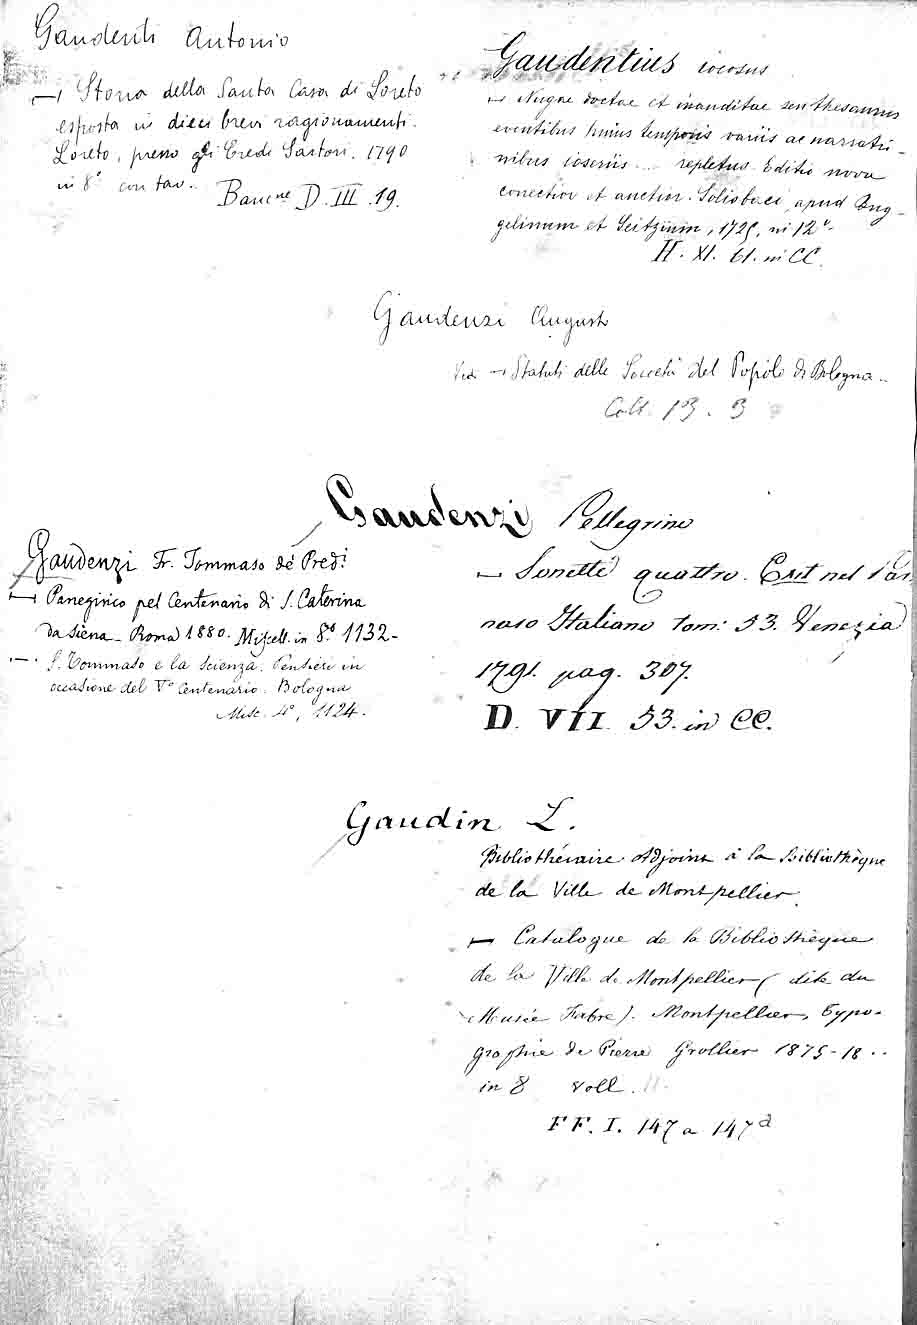 Gaudenti Antonio
— Storia della Santa Casa di Loreto
esposta in dieci brevi ragionamenti.
Loreto, presso gli Eredi Sartori. 1790
in 8° con tav.
Banc.ne D. III. 19.
Gaudentius iocosus
— Nugae doctae et inauditae seu thesaurus
eventibus huius temporis variis ac narratio-
nibus iocosis ... repletus. Editio nova
correctior et auctior. Solisbaci, apud
et in 12°.
II. XI. 61. in CC.
Gaudenzi August
Vedi — Statuti delle Società del Popolo di Bologna..
Coll. 13. 3
Gaudenzi Pellegrino
— Sonetti quattro. Exit nel Par
naso Italiano tom: 53. Venezia
1791. pag. 307.
D. VII. 53. in CC.
Gaudenzi Fr. Tommaso de' Pred.i
— Panegirico pel Centenario di S. Caterina
da Siena. Roma 1880. Miscell. in 8.° 1132-
— S. Tommaso e la scienza. Pensieri in
occasione del V° Centenario. Bologna
Misc. 4°, 1124.
Gaudin L.
Bibliothécaire Adjoint à la Bibliothèque
de la Ville de Montpellier.
— Catalogue de la Bibliothèque
de la Ville de Montpellier (dite du
Musée Fabre). Montpellier, Typo-
graphie de Pierre Grollier 1875-18..
in 8 voll. 11.
FF. I. 147 a 147d